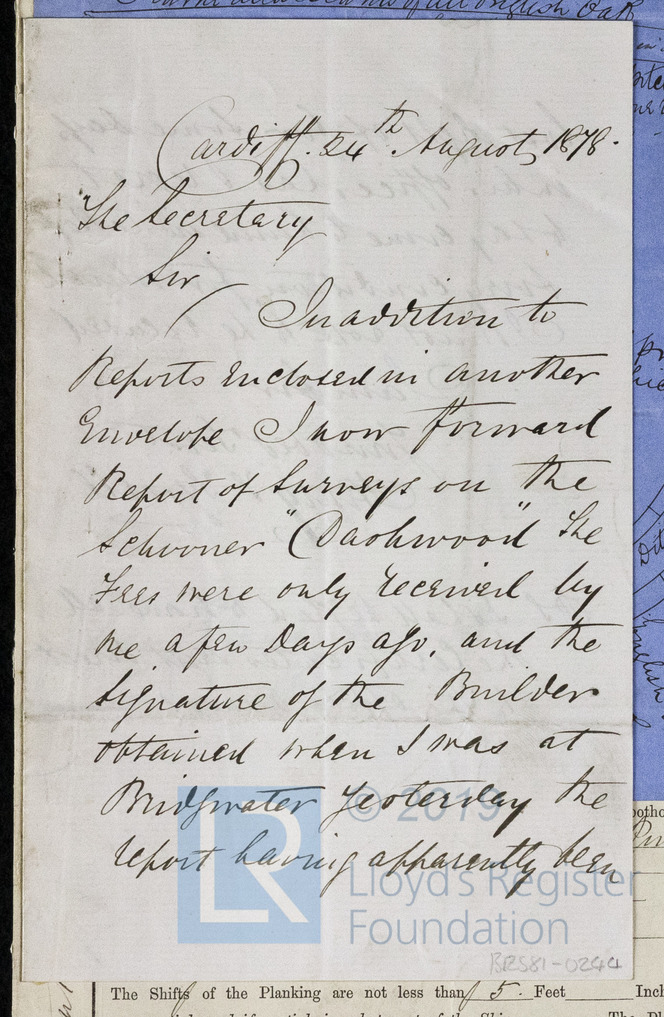 Cardiff. 24th August, 1878.
The Secretary
Sir
In addition to
Reports Enclosed in another
Envelope I now forward
Report of Surveys on the
Schooner "Dashwood" The
Fees were only received by
me a few Days ago, and the
Signature of the Builder
obtained when I was at
Bridgwater yesterday the
report having apparently been
© 2019
LR
Lloyd's Register
Foundation
BRS81-0244
The Shifts of the Planking are not less than 5. Feet Inch